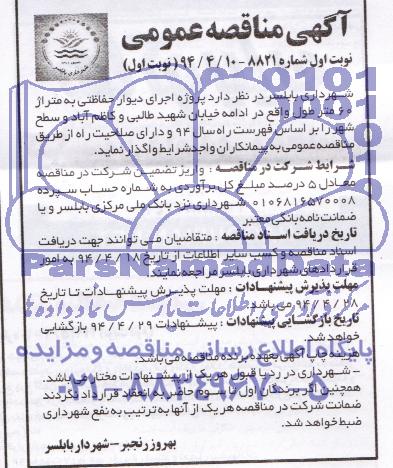 آگهی مناقصه عمومی
نوبت اول شماره ۸۸۲۱-۹۴/۴/۱۰ (نوبت اول)
شهرداری بابلسر در نظر دارد پروژه اجرای دیوار حفاظتی به متراژ
۶۰ متر طول واقع در ادامه خیابان شهید طالبی و کاظم آباد و سطح
شهر را بر اساس فهرست راه سال ۹۴ و دارای صلاحیت راه از طریق
مناقصه عمومی به پیمانکاران واجد شرایط واگذار نماید.
شرایط شرکت در مناقصه : واریز تضمین شرکت در مناقصه
معادل ۵ درصد مبلغ کل برآوردی به شماره حساب سپرده
۰۱۰۶۸۱۶۵۷۰۰۰۸ شهرداری نزد بانک ملی مرکزی بابلسر و یا
ضمانت نامه بانکی معتبر
تاریخ دریافت اسناد مناقصه : متقاضیان می توانند جهت دریافت
اسناد مناقصه و کسب سایر اطلاعات از تاریخ ۹۴/۴/۱۸ به امور
قراردادهای شهرداری بابلسر مراجعه نمایند.
مهلت پذیرش پیشنهادات : مهلت پذیرش پیشنهادات تا تاریخ
۹۴/۴/۲۸ می باشد.
تاریخ بازگشایی پیشنهادات : پیشنهادات ۹۴/۴/۲۹ بازگشایی
خواهد شد.
هزینه چاپ آگهی بعهده برنده مناقصه می باشد.
- شهرداری در رد یا قبول هر یک از پیشنهادات مختار می باشد.
همچنین اگر برندگان اول تا سوم حاضر به انعقاد قرارداد نگردند
ضمانت شرکت در مناقصه هر یک از آنها به ترتیب به نفع شهرداری
ضبط خواهد شد.
بهروز رنجبر - شهردار بابلسر
ParsNamadData
پایگاه اطلاع رسانی مناقصه و مزایده
۰۲۱-۸۸۳۴۹۶۷۰-۵